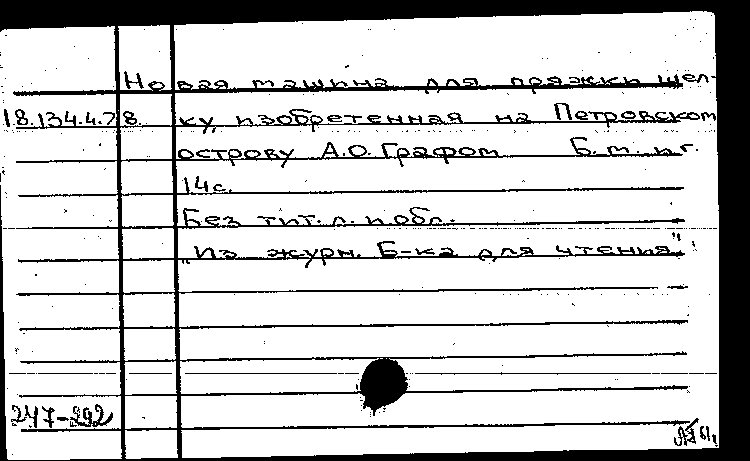 Новая машина для пряжки щел-
18.134.4.78. ку, изобретенная на Петровском
острову А.О. Графом Б.м. и г.
14с.
Без тит. л. и обл.
„Из журн. Б-ка для чтения"
247-292